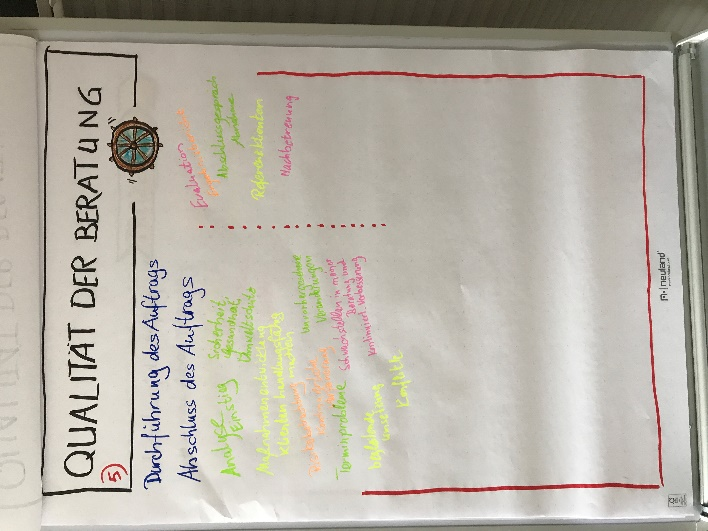 QUALITÄT DER BERATUNG
5)
Durchführung des Auftrags
Abschluss des Auftrags
Analyse
Einstieg
Sicherheit
Gesundheit
Umweltschutz
Maßnahmenentwicklung
Klienten handlungsfähig
machen
unvorhergesehene
Veränderungen
Terminprobleme
Schwachstellen in meiner
Beratung und
kontinuierl. Verbesserung
Begleitung
Umsetzung
Konflikte
Evaluation
Abschlussgespräch
Referenzklienten
Nachbetreuung
neuland